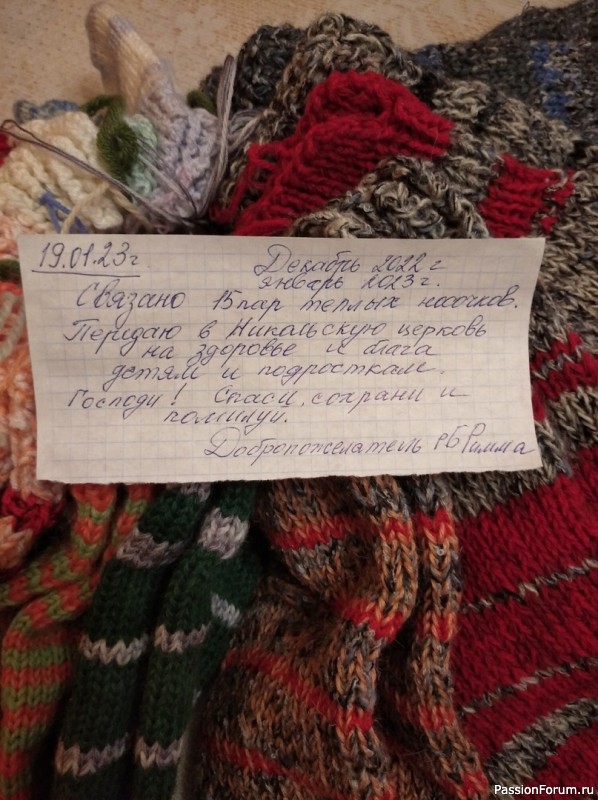 19.01.23г.
Декабрь 2022 г
январь 2023г.
Связано 15 пар теплых носочков.
Передаю в Никольскую церковь
на здоровье и блага
детям и подросткам.
Господи! Спаси, сохрани и
помилуй.
Доброжелатель рБ Римма
PassionForum.ru